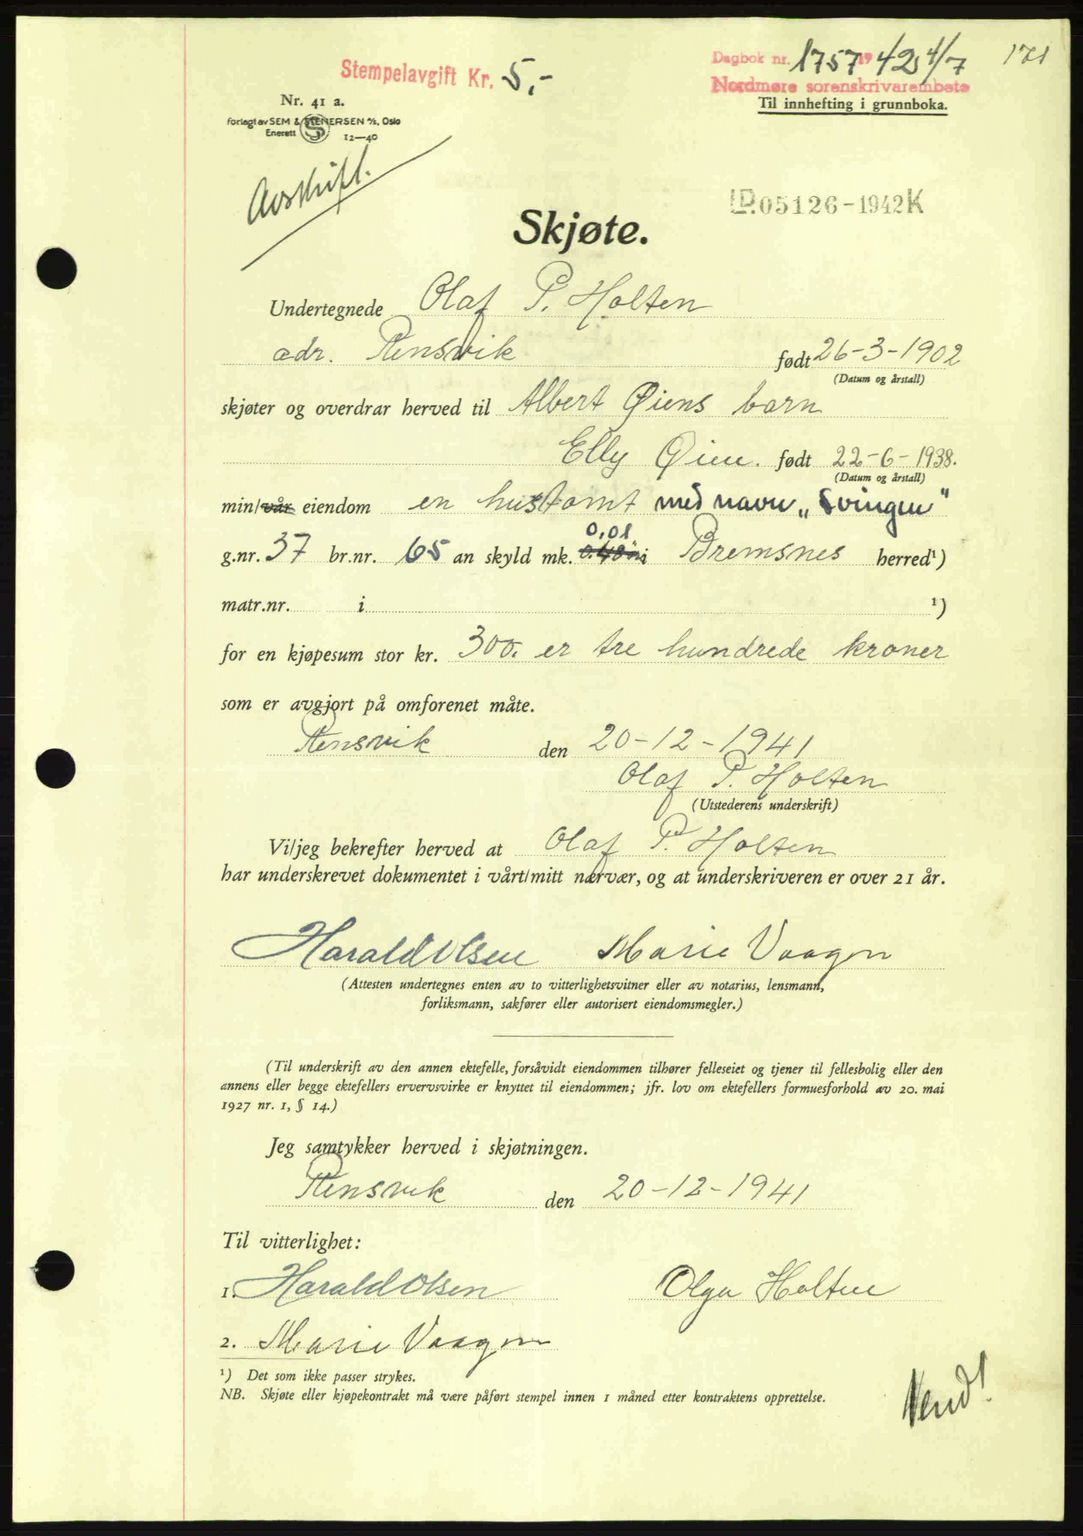 Stempelavgift Kr. 5,-
Dagbok nr. 1757 1942 4/7
171
Nordmøre sorenskrivarembete
Til innhefting i grunnboka.
Nr. 41 a.
Forlagt av SEM & STENERSEN A/S, Oslo
Enerett S 12—40
Avskrift.
LD.05126-1942K
Skjøte.
Undertegnede Olaf P. Holten
adr. Rensvik født 26-3-1902
(Datum og årstall)
skjøter og overdrar herved til Albert Øiens barn
Elly Øien. født 22-6-1938.
(Datum og årstall)
min/vår eiendom en hustomt med navn „Svingen"
0,01
g.nr. 37 br.nr. 65 an skyld mk. i Bremsnes herred¹)
matr.nr. i ¹)
for en kjøpesum stor kr. 300,- er tre hundrede kroner
som er avgjort på omforenet måte.
Rensvik den 20-12-1941
Olaf P. Holten
(Utstederens underskrift)
Vi/jeg bekrefter herved at Olaf P. Holten
har underskrevet dokumentet i vårt/mitt nærvær, og at underskriveren er over 21 år.
Harald Olsen Marie Vaagen
(Attesten undertegnes enten av to vitterlighetsvitner eller av notarius, lensmann,
forliksmann, sakfører eller autorisert eiendomsmegler.)
(Til underskrift av den annen ektefelle, forsåvidt eiendommen tilhører felleseiet og tjener til fellesbolig eller den
annens eller begge ektefellers ervervsvirke er knyttet til eiendommen; jfr. lov om ektefellers formuesforhold av 20. mai
1927 nr. 1, § 14.)
Jeg samtykker herved i skjøtningen.
Rensvik den 20-12-1941
Til vitterlighet:
1. Harald Olsen Olga Holten
2. Marie Vaagen
¹) Det som ikke passer strykes.
NB. Skjøte eller kjøpekontrakt må være påført stempel innen 1 måned etter kontraktens opprettelse.
Vend!